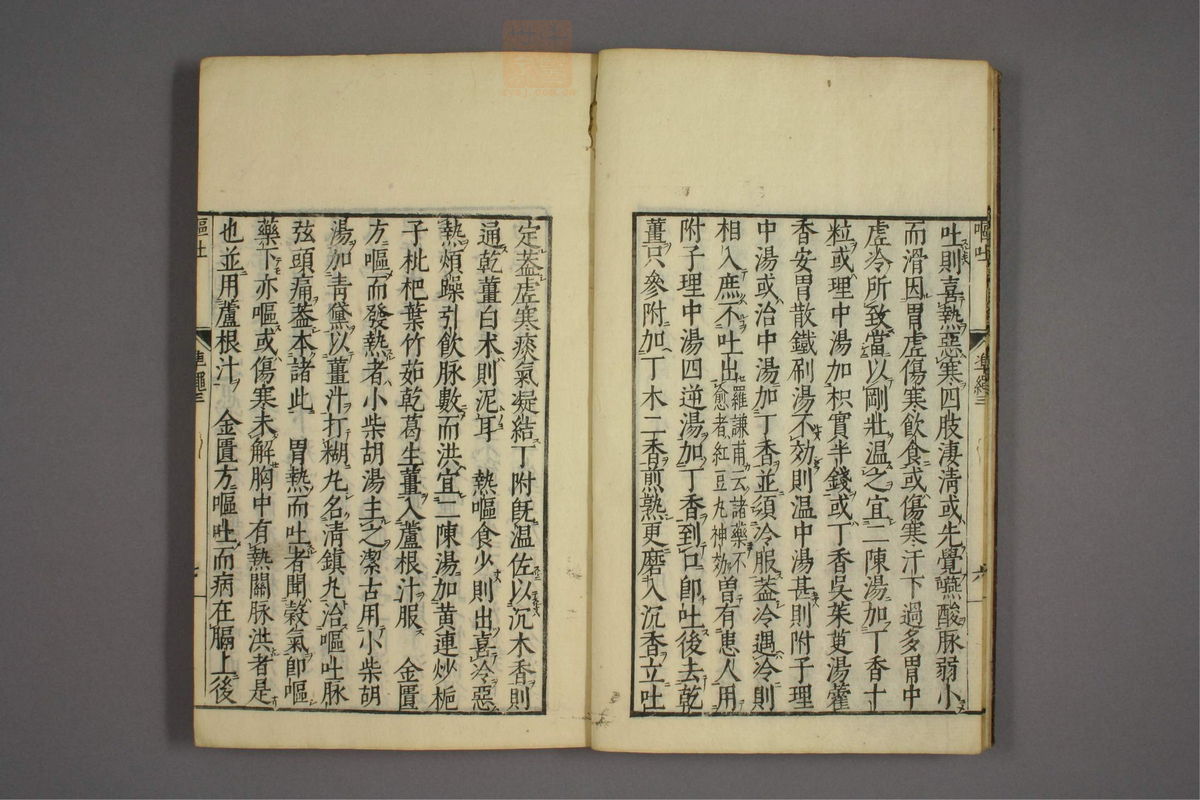 吐則喜熱惡寒四肢凄清或先覺嚥酸脉弱小
而滑因胃虛傷寒飲食或傷寒汗下過多胃中
虛冷所致當以剛壯温之宜二陳湯加丁香十
粒或理中湯加枳實半錢或丁香吳茱萸湯藿
香安胃散鐵刷湯不效則温中湯甚則附子理
中湯或治中湯加丁香並須冷服蓋冷遇冷則
相入庶不吐出羅謙甫云諸藥不愈者紅豆丸神効曽有患人用
附子理中湯四逆湯加丁香到口即吐後去乾
薑只參附加丁木二香煎熟更磨入沉香立吐
嘔吐
準繩三
定蓋虛寒痰氣凝結丁附旣温佐以沉木香則
通乾薑白术則泥耳　熱嘔食少則出喜冷惡
熱煩躁引飲脉數而洪宜二陳湯加黄連炒梔
子枇杷葉竹茹乾葛生薑入蘆根汁服　金匱
方嘔而發熱者小柴胡湯主之潔古用小柴胡
湯加青黛以薑汁打糊丸名清鎮丸治嘔吐脉
弦頭痛蓋本諸此　胃熱而吐者聞穀氣即嘔
藥下亦嘔或傷寒未解胸中有熱關脉洪者是
也並用蘆根汁　金匱方嘔吐而病在膈上後
嘔吐
準繩三